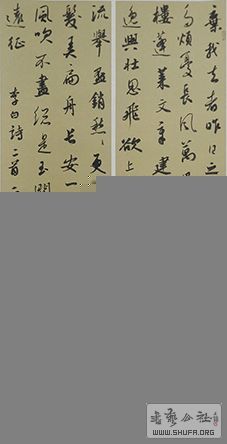 棄我去者昨日之
多煩憂長風萬里
樓蓬萊文章建
逸興壯思飛欲上
流舉杯銷愁愁更
髮弄扁舟長安一
風吹不盡總是玉關
遠征 李白詩二首
書藝公社
WWW.SHUFA.ORG